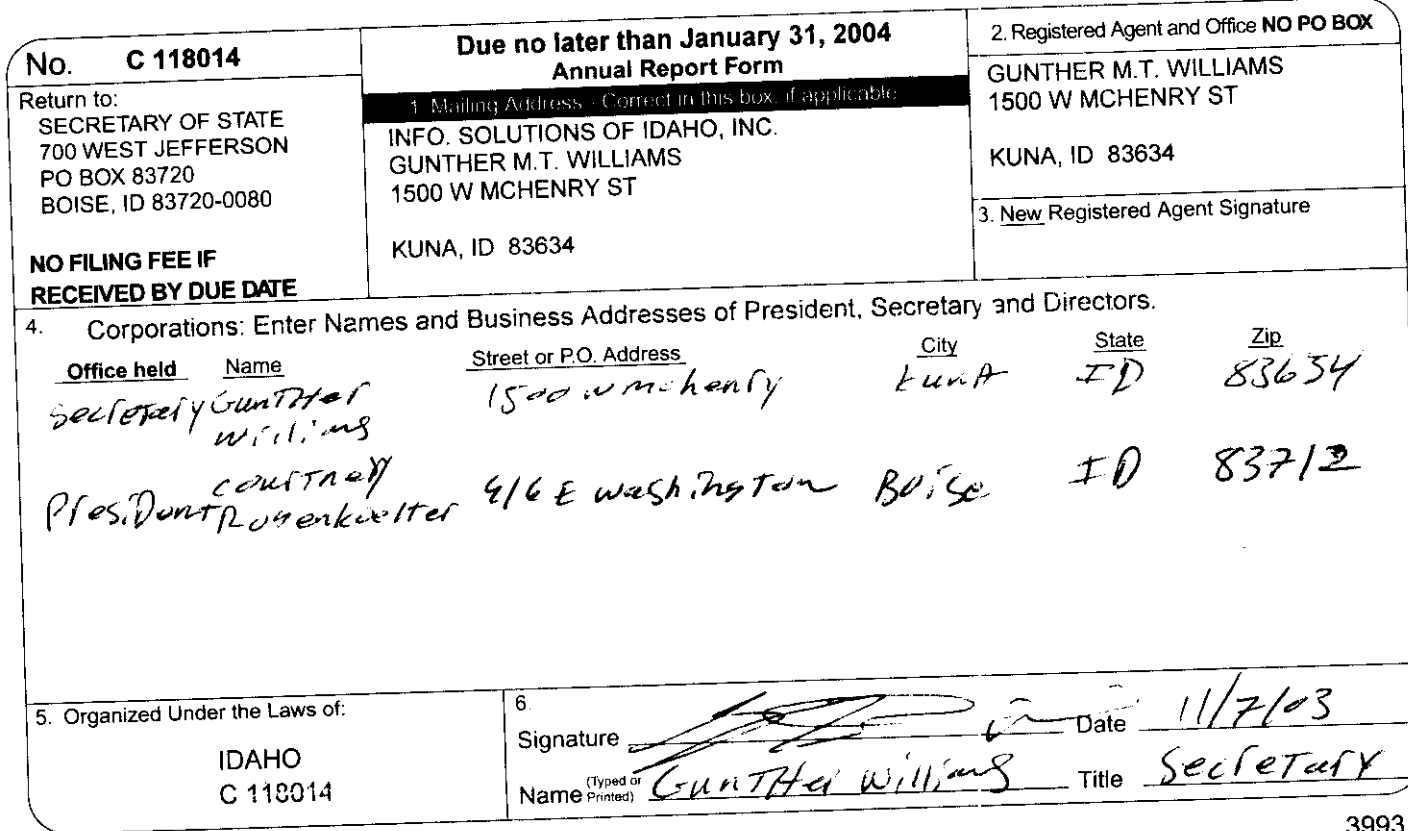 No. C 118014
Return to:
SECRETARY OF STATE
700 WEST JEFFERSON
PO BOX 83720
BOISE, ID 83720-0080
NO FILING FEE IF
RECEIVED BY DUE DATE
Due no later than January 31, 2004
Annual Report Form
1. Mailing Address - Correct in this box, if applicable
INFO. SOLUTIONS OF IDAHO, INC.
GUNTHER M.T. WILLIAMS
1500 W MCHENRY ST
KUNA, ID 83634
2. Registered Agent and Office NO PO BOX
GUNTHER M.T. WILLIAMS
1500 W MCHENRY ST
KUNA, ID 83634
3. New Registered Agent Signature
4. Corporations: Enter Names and Business Addresses of President, Secretary and Directors.
Office held Name Street or P.O. Address City State Zip
Secretary GunTHer 1500 W mchenry kunA ID 83634
Williams
courTney
PresiDent 416 E WashingTon Boise ID 83712
5. Organized Under the Laws of:
IDAHO
C 118014
6.
Signature Date 11/7/03
Name (Typed or Printed) GunTHer Williams Title SecreTary
3993